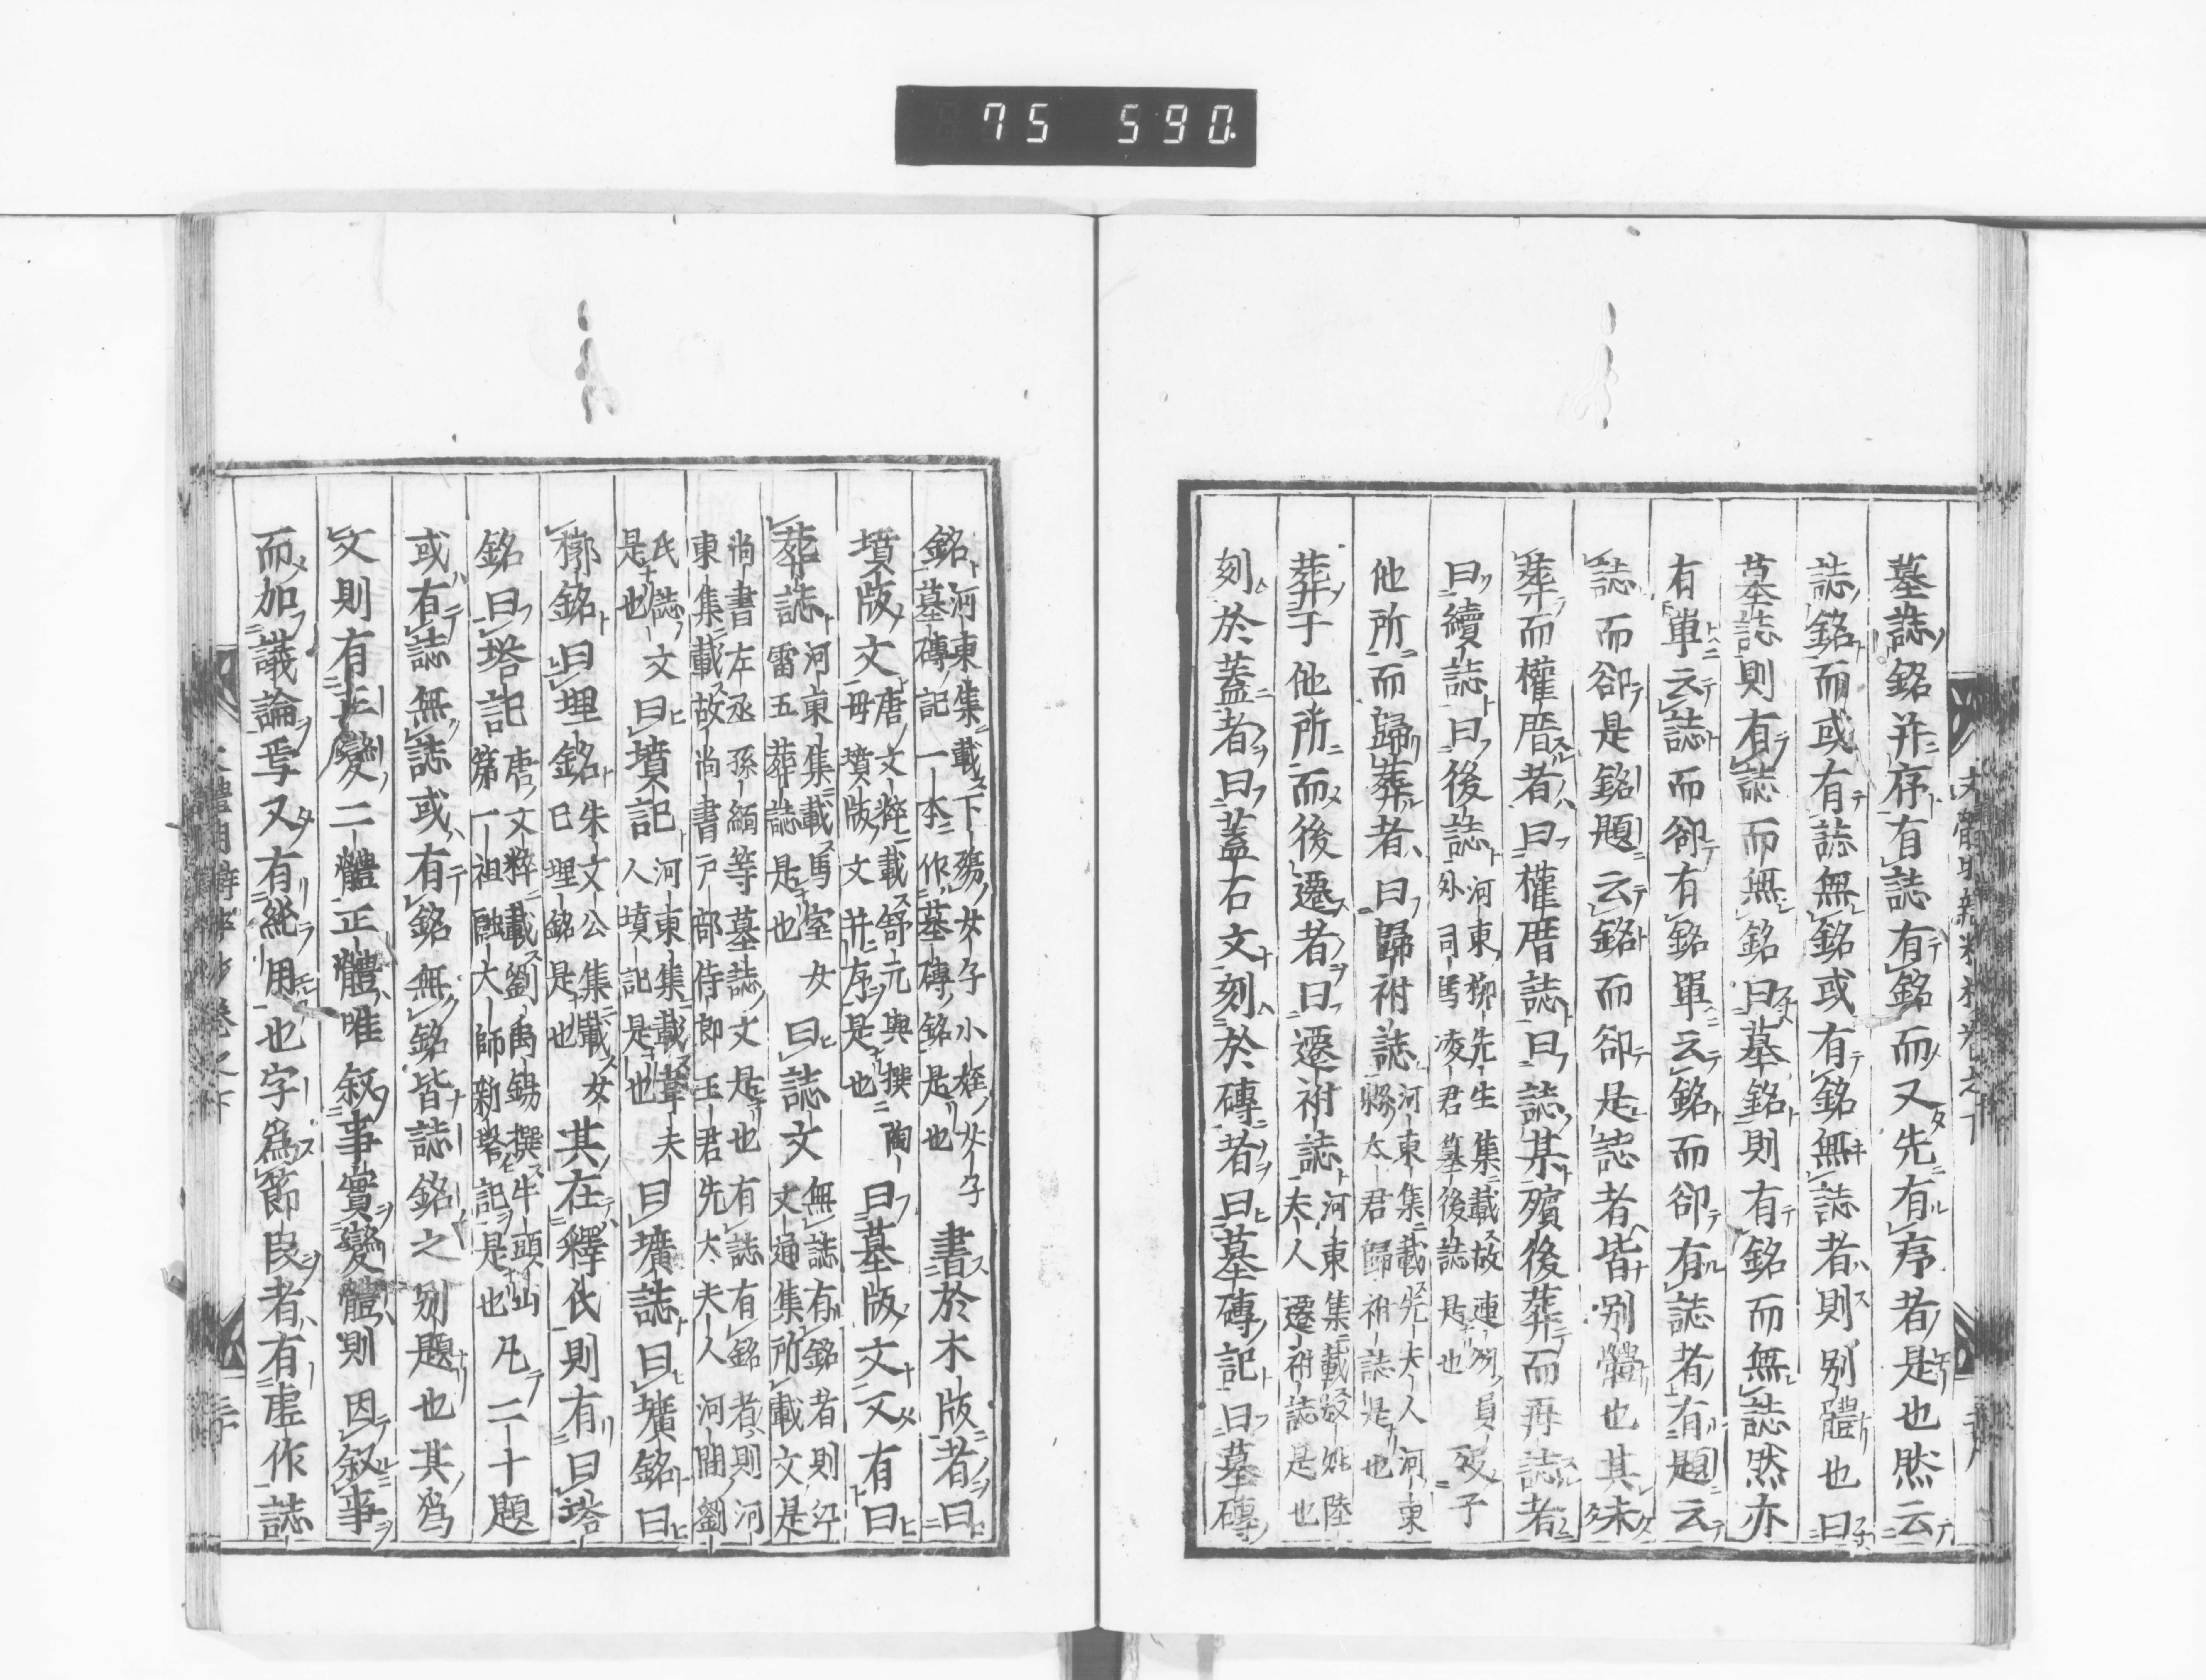 75 590.
墓誌銘并序有誌有銘而又先有序者是也然云
誌銘而或有誌無銘或有銘無誌者則別體也曰
墓誌則有誌而無銘曰墓銘則有銘而無誌然亦
有單云誌而卻有銘單云銘而卻有誌者有題云
誌而卻是銘題云銘而卻是誌者皆別體也其未
葬而權厝者曰權厝誌曰誌某殯後葬而再誌者
曰續誌曰後誌河東柳先生集載故連州員外司馬凌君墓後誌是也歿子
他所而歸葬者曰歸祔誌河東集載先夫人河東縣太君歸祔誌是也
葬于他所而後遷者曰遷祔誌河東集載叔妣陸夫人遷祔誌是也
刻於蓋者曰蓋石文刻於磚者曰墓磚記曰墓磚
銘河東集載下殤女子小姪女子墓磚記一本作墓磚銘是也書於木版者曰
墳版文唐文粹載舒元輿撰陶母墳版文并序是也曰墓版文又有曰
葬誌河東集載馬室女雷五葬誌是也曰誌文無誌有銘者則江文通集所載文是
尚書左丞孫緬等墓誌文是也有誌有銘者則河東集載故尚書戶部侍郎王君先太夫人河間劉
氏誌文是也曰墳記河東集載韋夫人墳記是也曰壙誌曰壙銘曰
槨銘曰埋銘朱文公集載女巳埋銘是也其在釋氏則有曰塔
銘曰塔記唐文粹載劉禹錫撰牛頭山第一祖融大師新塔記是也凡二十題
或有誌無誌或有銘無銘皆誌銘之別題也其爲
文則有正變二體正體唯叙事實變體則因叙事
而加議論焉又有純用也字爲節段者有虛作誌